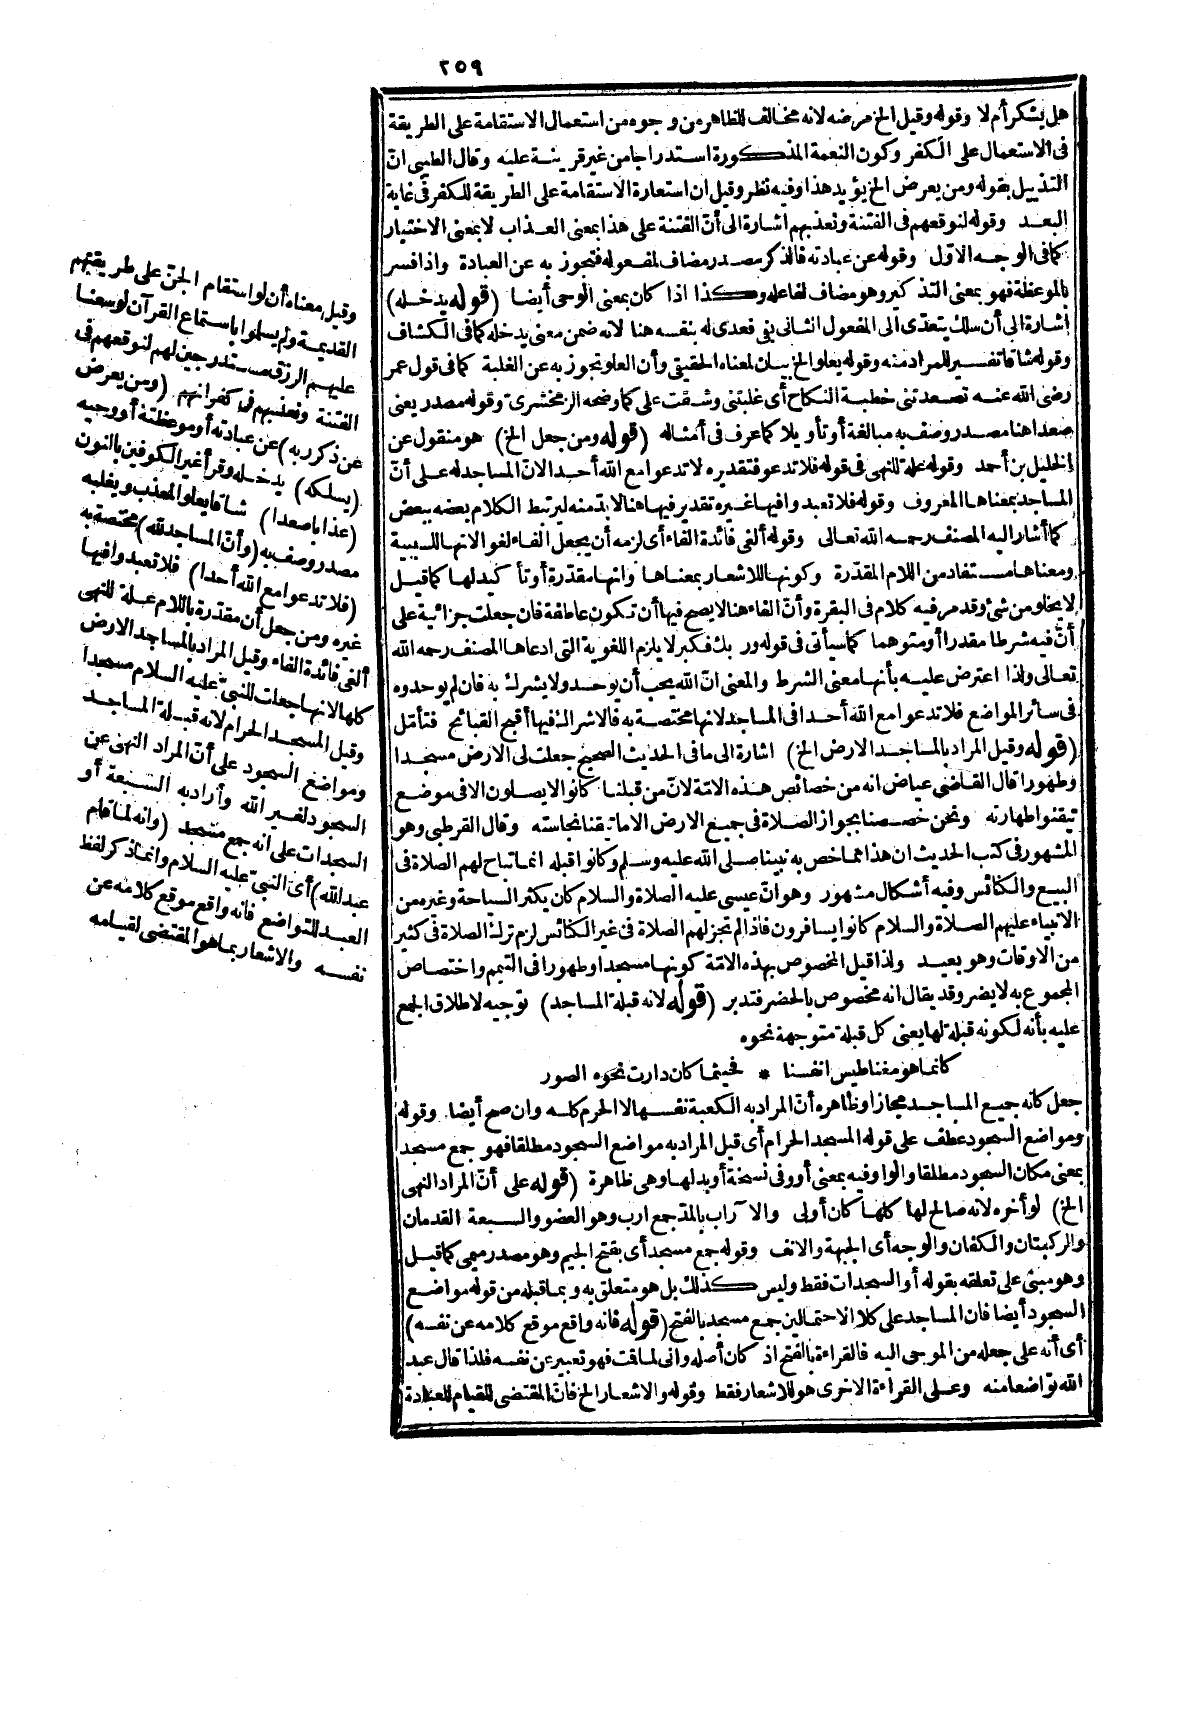 ٢٥٩
هل يشكر أم لا وقوله وقيل الخ مرضه لانه مخالف للظاهر من وجوه من استعمال الاستقامة على الطريقة
فى الاستعمال على الكفر وكون النعمة المذكورة استدراجا من غير قرينة عليه وقال الطيبى انّ
التذييل بقوله ومن يعرض الخ يؤيد هذا وفيه نظر وقيل ان استعارة الاستقامة على الطريقة للكفر فى غاية
البعد وقوله لنوقعهم فى الفتنة ونعذبهم اشارة الى أنّ الفتنة على هذا بمعنى العذاب لا بمعنى الاختبار
كما فى الوجه الاوّل وقوله عن عبادته فالذكر مصدر مضاف لمفعوله فتجوز به عن العبادة واذا فسر
بالموعظة فهو بمعنى التذكير وهو مضاف لفاعله وكذا اذا كان بمعنى الوحى أيضا (قوله يدخله)
اشارة الى أن سلك يتعدّى الى المفعول الثانى بفى فعدى له بنفسه هنا لانه ضمن معنى يدخله كما فى الكشاف
وقوله شاقا تفسير للمراد منه وقوله يعلو الخ بيان لمعناه الحقيقى وأن العلو تجوز به عن الغلبة كما فى قول عمر
رضى الله عنه تصعدتنى خطبة النكاح أى غلبتنى وشقت على كما وضحه الزمخشرىّ وقوله مصدر يعنى
صعدا هنا مصدر وصف به مبالغة أو تأويلا كما عرف فى أمثاله (قوله ومن جعل الخ) هو منقول عن
الخليل بن أحمد وقوله علة للنهى فى قوله فلا تدعو فتقديره لا تدعوا مع الله أحدا لانّ المساجد له على أنّ
المساجد بمعناها المعروف وقوله فلا تعبدوا فيها غيره تقدير فيها هنا لا بدّ منه ليرتبط الكلام بعضه ببعض
كما أشار اليه المصنف رحمه الله تعالى وقوله ألغى فائدة الفاء أى لزمه أن يجعل الفاء لغوا لانها للسببية
ومعناها مستفاد من اللام المقدّرة وكونها للاشعار بمعناها وانها مقدّرة أو تأكيد لها كما قيل
لا يخلو من شئ وقد مر فيه كلام فى البقرة وأنّ الفاء هنا لا يصح فيها أن تكون عاطفة فان جعلت جزائية على
أنّ فيه شرطا مقدرا أو متوهما كما سيأتى فى قوله وربك فكبر لا يلزم اللغوية التى ادعاها المصنف رحمه الله
تعالى ولذا اعترض عليه بأنها معنى الشرط والمعنى انّ الله يحب أن يوحد ولا يشرك به فان لم يوحدوه
فى سائر المواضع فلا تدعوا مع الله أحدا فى المساجد لانها مختصة به فالاشراك فيها أقبح القبائح فتأمّل
(قوله وقيل المراد بالمساجد الارض الخ) اشارة الى ما فى الحديث الصحيح جعلت لى الارض مسجدا
وطهورا قال القاضى عياض انه من خصائص هذه الامّة لانّ من قبلنا كانوا لا يصلون الا فى موضع
تيقنوا طهارته ونحن خصصنا بجواز الصلاة فى جميع الارض الا ما تيقنا نجاسته وقال القرطبى وهو
المشهور فى كتب الحديث ان هذا مما خص به نبينا صلى الله عليه وسلم وكانوا قبله انما تباح لهم الصلاة فى
البيع والكنائس وفيه أشكال مشهور وهو انّ عيسى عليه الصلاة والسلام كان يكثر السياحة وغيره من
الانبياء عليهم الصلاة والسلام كانوا يسافرون فاذا لم تجز لهم الصلاة فى غير الكنائس لزم ترك الصلاة فى كثير
من الاوقات وهو بعيد ولذا قيل المخصوص بهذه الامّة كونها مسجدا وطهورا فى التيمم واختصاص
المجموع به لا يضر وقد يقال انه مخصوص بالحضر فتدبر (قوله لانه قبلة المساجد) توجيه لاطلاق الجمع
عليه بأنه لكونه قبلة لها يعنى كل قبلة متوجهة نحوه
كانما هو مغناطيس انفسنا * فحيثما كان دارت نحوه الصور
جعل كانه جميع المساجد مجازا وظاهره أنّ المراد به الكعبة نفسها لا الحرم كلسه وان صح أيضا وقوله
ومواضع السجود عطف على قوله المسجد الحرام أى قيل المراد به مواضع السجود مطلقا فهو جمع مسجد
بمعنى مكان السجود مطلقا والواو فيه بمعنى أو وفى نسخة أو بدلها وهى ظاهرة (قوله على أنّ المراد النهى
الخ) لو أخره لانه صالح لها كلها كان أولى والآراب بالمدّ جمع ارب وهو العضو والسبعة القدمان
والركبتان والكفان والوجه أى الجبهة والانف وقوله جمع مسجد أى بفتح الجيم وهو مصدر ميمى كما قيل
وهو مبنى على تعلقه بقوله أو السجدات فقط وليس كذلك بل هو متعلق به وبما قبله من قوله مواضع
السجود أيضا فان المساجد على كلا الاحتمالين جمع مسجد بالفتح (قوله فانه واقع موقع كلامه عن نفسه)
أى أنه على جعله من الموحى اليه فالقراءة بالفتح اذ كان أصله وانى لما قمت فهو تعبير عن نفسه فلذا قال عبد
الله تواضعا منه وعلى القراءة الاخرى هو للاشعار فقط وقوله والاشعار الخ فانّ المقتضى للقيام للعبادة
وقيل معناه أن لو استقام الجنّ على طريقتهم
القديمة ولم يسلموا باستماع القرآن لوسعنا
عليهم الرزق مستدرجين لهم لنوقعهم فى
الفتنة ونعذبهم فى كفرانهم (ومن يعرض
عن ذكر ربه) عن عبادته أو موعظته أو وحيه
(يسلكه) يدخله وقرأ غير الكوفين بالنون
(عذابا صعدا) شاقا يعلو المعذب ويغلبه
مصدر وصف به (وأنّ المساجد لله) مختصة به
(فلا تدعوا مع الله أحدا) فلا تعبدوا فيها
غيره ومن جعل أن مقدرة باللام علة للنهى
ألغى فائدة الفاء وقيل المراد بالمساجد الارض
كلها لانها جعلت للنبىّ عليه السلام مسجدا
وقيل المسجد الحرام لانه قبلة المساجد
ومواضع السجود على أنّ المراد النهى عن
السجود لغير الله وأرابه السبعة أو
السجدات على انه جمع مسجد (وانه لما قام
عبد الله) أى النبىّ عليه السلام وانما ذكر لفظ
العبد للتواضع فانه واقع موقع كلامه عن
نفسه والاشعار بما هو المقتضى لقيامه